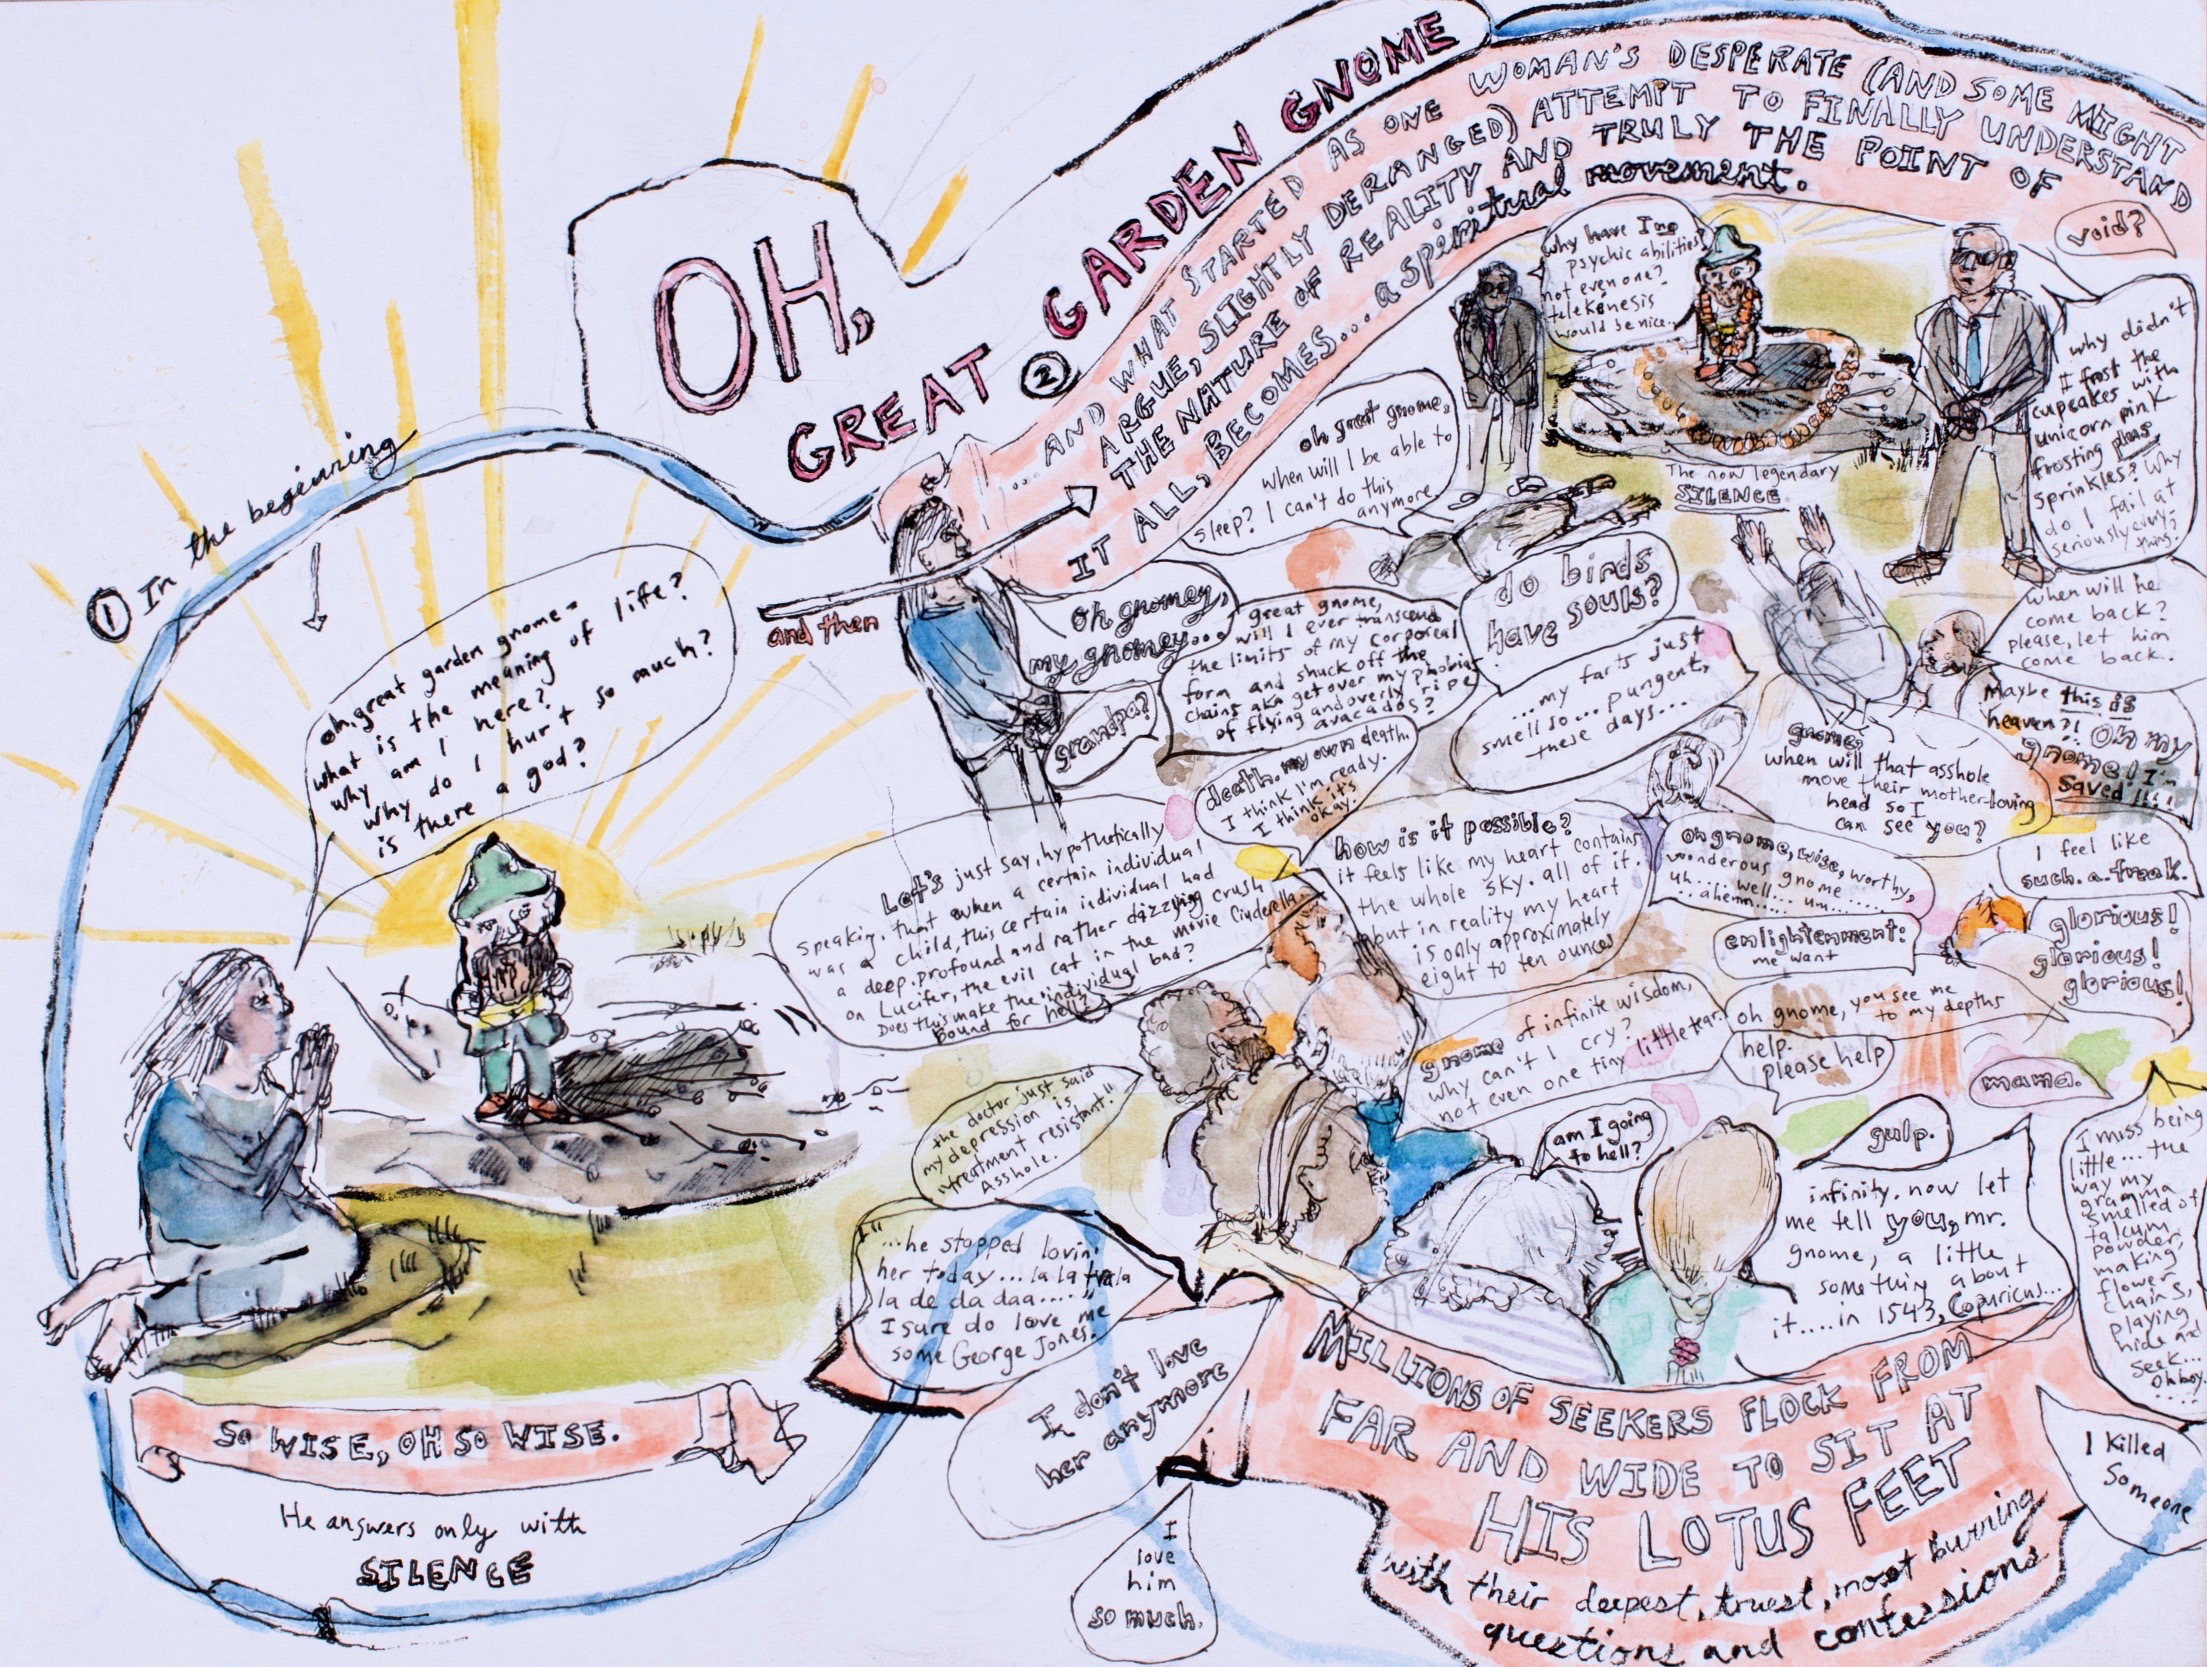 OH,
GREAT GARDEN GNOME
① In the beginning
oh, great garden gnome-
what is the meaning of life?
why am I here?
why do I hurt so much?
is there a god?
SO WISE, OH SO WISE.
He answers only with
SILENCE
and then
②
....AND WHAT STARTED AS ONE WOMAN'S DESPERATE (AND SOME MIGHT
ARGUE, SLIGHTLY DERANGED) ATTEMPT TO FINALLY UNDERSTAND
THE NATURE OF REALITY AND TRULY THE POINT OF
IT ALL, BECOMES... a spiritual movement.
why have I no
psychic abilities?
not even one?
telekinesis
would be nice..
void?
why didn't
I frost the
cupcakes with
unicorn pink
frosting plus
sprinkles? Why
do I fail at
seriously every-
thing?
The now legendary
SILENCE
oh great gnome,
when will I be able to
sleep? I can't do this
anymore.
oh gnomey,
my gnomey...
great gnome,
will I ever transcend
the limits of my corporeal
form and shuck off the
chains aka get over my phobias
of flying and overly ripe
avacados?
do birds
have souls?
when will he
come back?
please, let him
come back.
grandpa?
...my farts just
smell so... pungent,
these days...
death. my own death.
I think I'm ready.
I think it's
okay.
gnome,
when will that asshole
move their mother-loving
head so I
can see you?
maybe this is
heaven?! Oh my
gnome! I'm
saved!!!
Let's just say, hypothetically
speaking, that when a certain individual
was a child, this certain individual had
a deep, profound and rather dazzling crush
on Lucifer, the evil cat in the movie Cinderella.
Does this make the individual bad?
bound for hell?
how is it possible?
it feels like my heart contains
the whole sky. all of it.
but in reality my heart
is only approximately
eight to ten ounces
oh gnome, wise, worthy,
wonderous gnome.....
uh.....well... um....
...ahemm.....
I feel like
such. a. freak.
enlightenment:
me want
glorious!
glorious!
glorious!
gnome of infinite wisdom,
why can't I cry?
not even one tiny little tear.
oh gnome, you see me
to my depths
help.
please help
mama.
the doctor just said
my depression is
"treatment resistant."
Asshole.
am I going
to hell?
gulp.
I miss being
little... the
way my
gramma
smelled of
talcum
powder,
making
flower
chains,
playing
hide and
seek...
oh boy.
....
"...he stopped lovin'
her today... la la tra la
la de da daa....."
I sure do love me
some George Jones.
infinity. now let
me tell you, mr.
gnome, a little
something about
it....in 1543, Copuricus...
I don't love
her anymore
I
love
him
so much.
I killed
someone
MILLIONS OF SEEKERS FLOCK FROM
FAR AND WIDE TO SIT AT
HIS LOTUS FEET
with their deepest, truest, most burning
questions and confessions